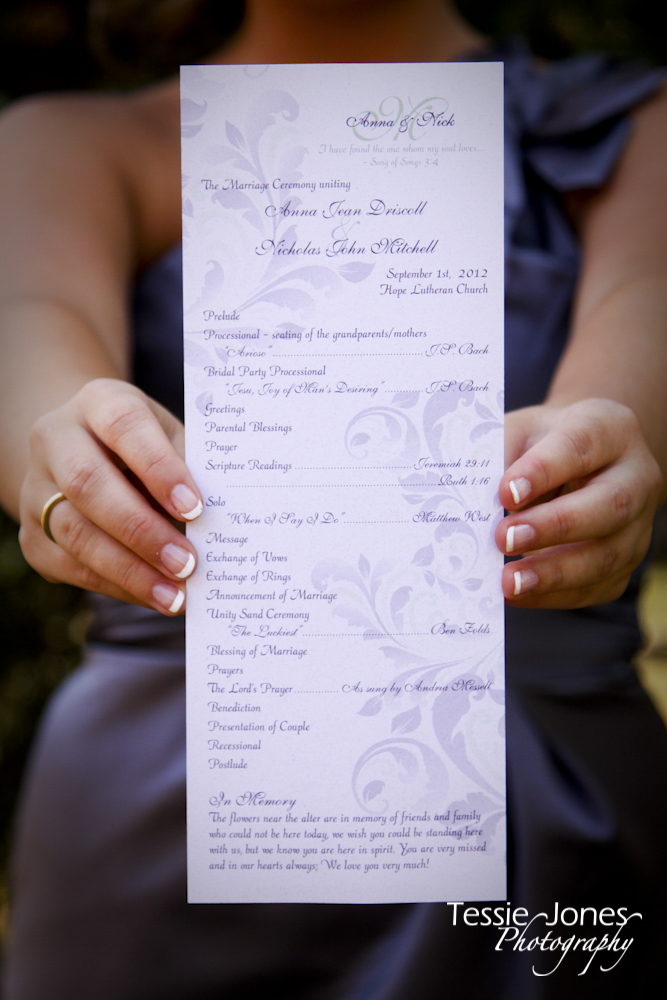 Anna & Nick
I have found the one whom my soul loves...
~ Song of Songs 3:4
The Marriage Ceremony uniting
Anna Jean Driscoll
&
Nicholas John Mitchell
September 1st, 2012
Hope Lutheran Church
Prelude
Processional ~ seating of the grandparents/mothers
"Arioso" ........................................ J.S. Bach
Bridal Party Processional
"Jesu, Joy of Man's Desiring" .......... J.S. Bach
Greetings
Parental Blessings
Prayer
Scripture Readings ........................................ Jeremiah 29:11
........................................ Ruth 1:16
Solo
"When I Say I Do" .................. Matthew West
Message
Exchange of Vows
Exchange of Rings
Announcement of Marriage
Unity Sand Ceremony
"The Luckiest" .................................. Ben Folds
Blessing of Marriage
Prayers
The Lord's Prayer ............ As sung by Andria Messelt
Benediction
Presentation of Couple
Recessional
Postlude
In Memory
The flowers near the alter are in memory of friends and family
who could not be here today, we wish you could be standing here
with us, but we know you are here in spirit. You are very missed
and in our hearts always; We love you very much!
Tessie Jones
Photography